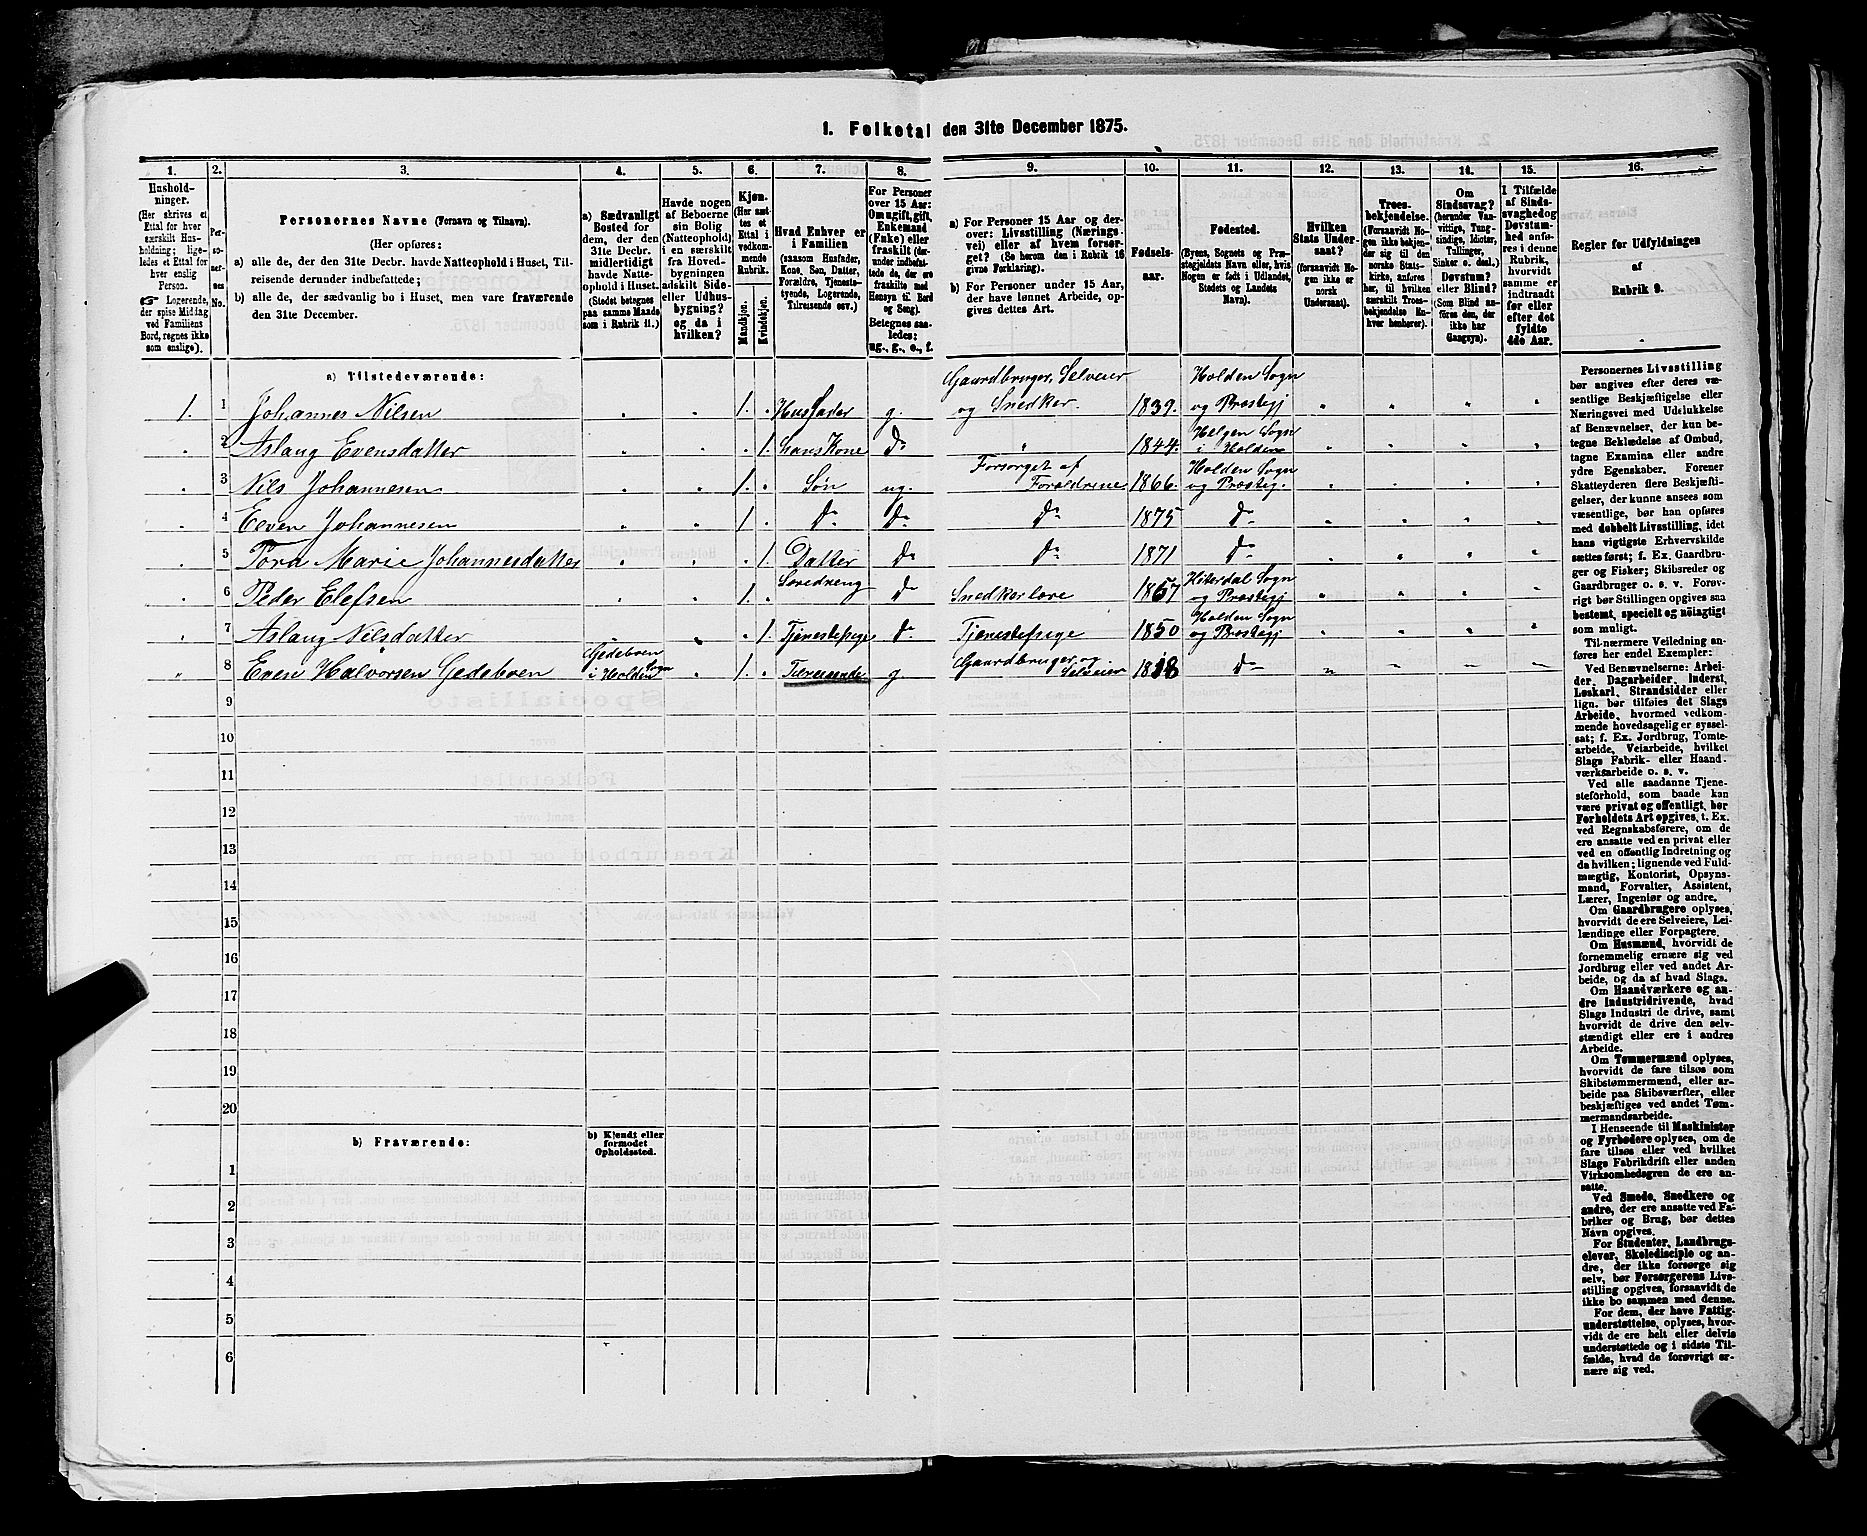 1. Folketal den 31te December 1875.
1.
Hushold-
ninger.
(Her skrives et
Ettal for hver
særskilt Hus-
holdning; lige-
ledes et Ettal for
hver enslig
Person.
☞ Logerende,
der spise Middag
ved Familiens
Bord, regnes ikke
som enslige).
2.
Per-
so-
ner-
nes
No.
3.
Personernes Navne (Fornavn og Tilnavn).
(Her opføres:
a) alle de, der den 31te Decbr. havde Natteophold i Huset, Til-
reisende derunder indbefattede;
b) alle de, der sædvanlig bo i Huset, men vare fraværende
den 31te December.
4.
a) Sædvanligt
Bosted for
dem, der den
31te Decbr.
midlertidigt
havde Natte-
ophold i Huset.
(Stedet betegnes
paa samme Maade
som i Rubrik 11.)
5.
Havde nogen
af Beboerne
sin Bolig
(Natteophold)
i en særskilt
fra Hoved-
bygningen
adskilt Side-
eller Udhus-
bygning?
og da i
hvilken?
6.
Kjøn.
(Her sæt-
tes et
Ettal i
vedkom-
mende
Rubrik.
Mandkjøn.
Kvindekjøn.
7.
Hvad Enhver er
i Familien
(saasom Husfader,
Kone, Søn, Datter,
Forældre, Tjeneste-
tyende, Logerende,
Tilreisende osv.)
8.
For Personer
over 15 Aar:
Om ugift, gift,
Enkemand
(Enke) eller
fraskilt (der-
under indbefat-
tede de, der ere
fraskilte med
Hensyn til Bord
og Seng).
Betegnes saa-
ledes:
ug., g., e., f.
9.
a) For Personer 15 Aar og der-
over: Livsstilling (Nærings-
vei) eller af hvem forsør-
get? (Se herom den i Rubrik 16
givne Forklaring).
b) For Personer under 15 Aar,
der have lønnet Arbeide, op-
gives dettes Art.
10.
Fødsels-
aar.
11.
Fødested.
(Byens, Sognets og Præ-
stegjeldets Navn eller, hvis
Nogen er født i Udlandet,
Stedets og Landets
Navn).
12.
Hvilken
Stats Under-
saat?
(forsaavidt No-
gen ikke er
norsk
Undersaat).
13.
Troes-
bekjendelse.
(Forsaavidt No-
gen ikke bekjen-
der sig til den
norske Stats-
kirke, anføres
her, til hvilken
særskilt Troes-
bekjendelse En-
hver henhører).
14.
Om
Sindssvag?
(herunder Van-
vittige, Tung-
sindige, Idioter,
Tullinger,
Sinker o. desl.).
Døvstum?
eller Blind?
(Som Blind an-
føres den, der
ikke har
Gangsyn).
15.
I Tilfælde
af Sinds-
svaghed og
Døvstum-
hed anfø-
res i denne
Rubrik,
hvorvidt
samme er
indtraadt
før eller
efter det
fyldte
4de Aar.
16.
Regler for Udfyldningen
af
Rubrik 9.
a) Tilstedeværende:
1. 1 Johannes Nilsen " " 1. " Husfader g. Gaardbruger, Selveier og Snedker. 1839. Holden Sogn og Prostegj " " " "
" 2 Aslaug Evensdatter " " " 1. hans Kone do " 1844. Helgen Sogn i Holden " " " "
" 3 Nils Johannesen " " 1. " Søn ug. Forsorget af Foraldrene 1866. Holden Sogn og Prosteg. " " " "
" 4 Even Johannesen " " 1 " do do do 1875 do " " " "
" 5 Tora Marie Johannesdatter " " " 1. Datter do do 1871 do " " " "
" 6 Peder Elefsen " " 1. " Læredreng do Snedkerlære 1857 Hiterdal Sogn og Prostegj " " " "
" 7 Aslaug Nilsdatter " " " 1. Tjenestepige do Tjenestepige 1850 Holden Sogn og Prostegj " " " "
" 8 Even Halvorsen Gedeboen Gedeboen i Holden Sogn " 1. " Tilreisende g Gaardbruger og Selveier 1818 do " " " "
9
10
11
12
13
14
15
16
17
18
19
20
b) Fraværende:
b) Kjendt eller
formodet
Opholdssted.
1
2
3
4
5
6
Personernes Livsstilling
bør angives efter deres væ-
sentlige Beskjæftigelse eller
Næringsvei med Udelukkelse
af Benævnelser, der kun be-
tegne Beklædelse af Ombud,
tagne Examina eller andre
ydre Egenskaber. Forener
Skatteyderen flere Beskjæfti-
gelser, der kunne ansees som
væsentlige, bør han opføres
med dobbelt Livsstilling, idet
hans vigtigste Erhvervskilde
sættes først; f. Ex. Gaardbru-
ger og Fisker; Skibsreder og
Gaardbruger o. s. v. Forøv-
rigt bør Stillingen opgives saa
bestemt, specielt og nøiagtigt
som muligt.
Til nærmere Veiledning an-
føres her endel Exempler:
Ved Benævnelserne: Arbei-
der, Dagarbeider, Inderst,
Løskarl, Strandsidder eller
lign. bør tilføies det Slags
Arbeide, hvormed vedkom-
mende hovedsagelig er syssel-
sat; f. Ex. Jordbrug, Tomte-
arbeide, Veiarbeide, hvilket
Slags Fabrik- eller Haand-
værksarbeide o. s. v.
Ved alle saadanne Tjene-
steforhold, som baade kan
være privat og offentligt, bør
Forholdets Art opgives, t. Ex.
ved Regnskabsførere, om de
ere ansatte ved en privat eller
ved en offentlig Indretning og
da hvilken; lignende ved Fuld-
mægtig, Kontorist, Opsyns-
mand, Forvalter, Assistent,
Lærer, Ingeniør og andre.
Om Gaardbrugere oplyses,
hvorvidt de ere Selveiere, Lei-
lændinge eller Forpagtere.
Om Husmænd, hvorvidt de
fornemmelig ernære sig ved
Jordbrug eller ved andet Ar-
beide, og da af hvad Slags.
Om Haandværkere og an-
dre Industridrivende, hvad
Slags Industri de drive, samt
hvorvidt de drive den selv-
stændigt eller ere i andres
Arbeide.
Om Tømmermænd oplyses,
hvorvidt de fare tilsøs som
Skibstømmermænd, eller ar-
beide paa Skibsværfter, eller
beskjæftiges ved andet Tøm-
mermandsarbeide.
I Henseende til Maskinister
og Fyrbødere oplyses, om de
fare tilsøs eller ved hvilket
Slags Fabrikdrift eller anden
Virksomhedsgren de ere an-
satte.
Ved Smede, Snedkere og
andre, der ere ansatte ved Fa-
briker og Brug, bør dettes
Navn opgives.
For Studenter, Landbrugs-
elever, Skoledisciple og an-
dre, der ikke forsørge sig
selv, bør Forsørgerens Livs-
stilling opgives, forsaavidt de
ikke bo sammen med denne.
For dem, der have Fattig-
understøttelse, oplyses, hvor-
vidt de ere helt eller delvis
understøttede og i sidste Til-
fælde, hvad de forøvrigt er-
nære sig ved.